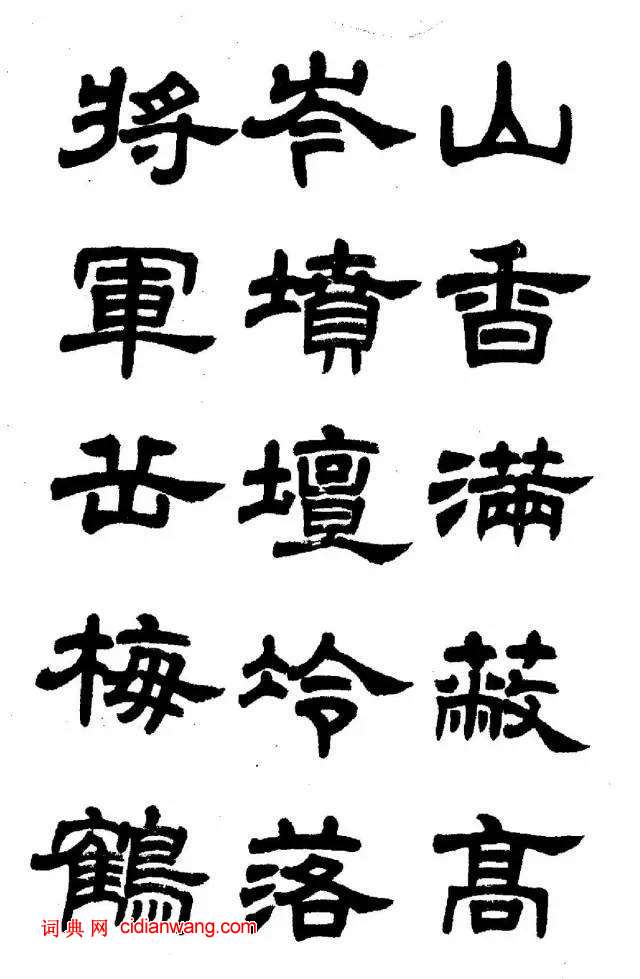 山香满蔽高
岑墳壇坽落
将軍梅鶴
词典网 cidianwang.com